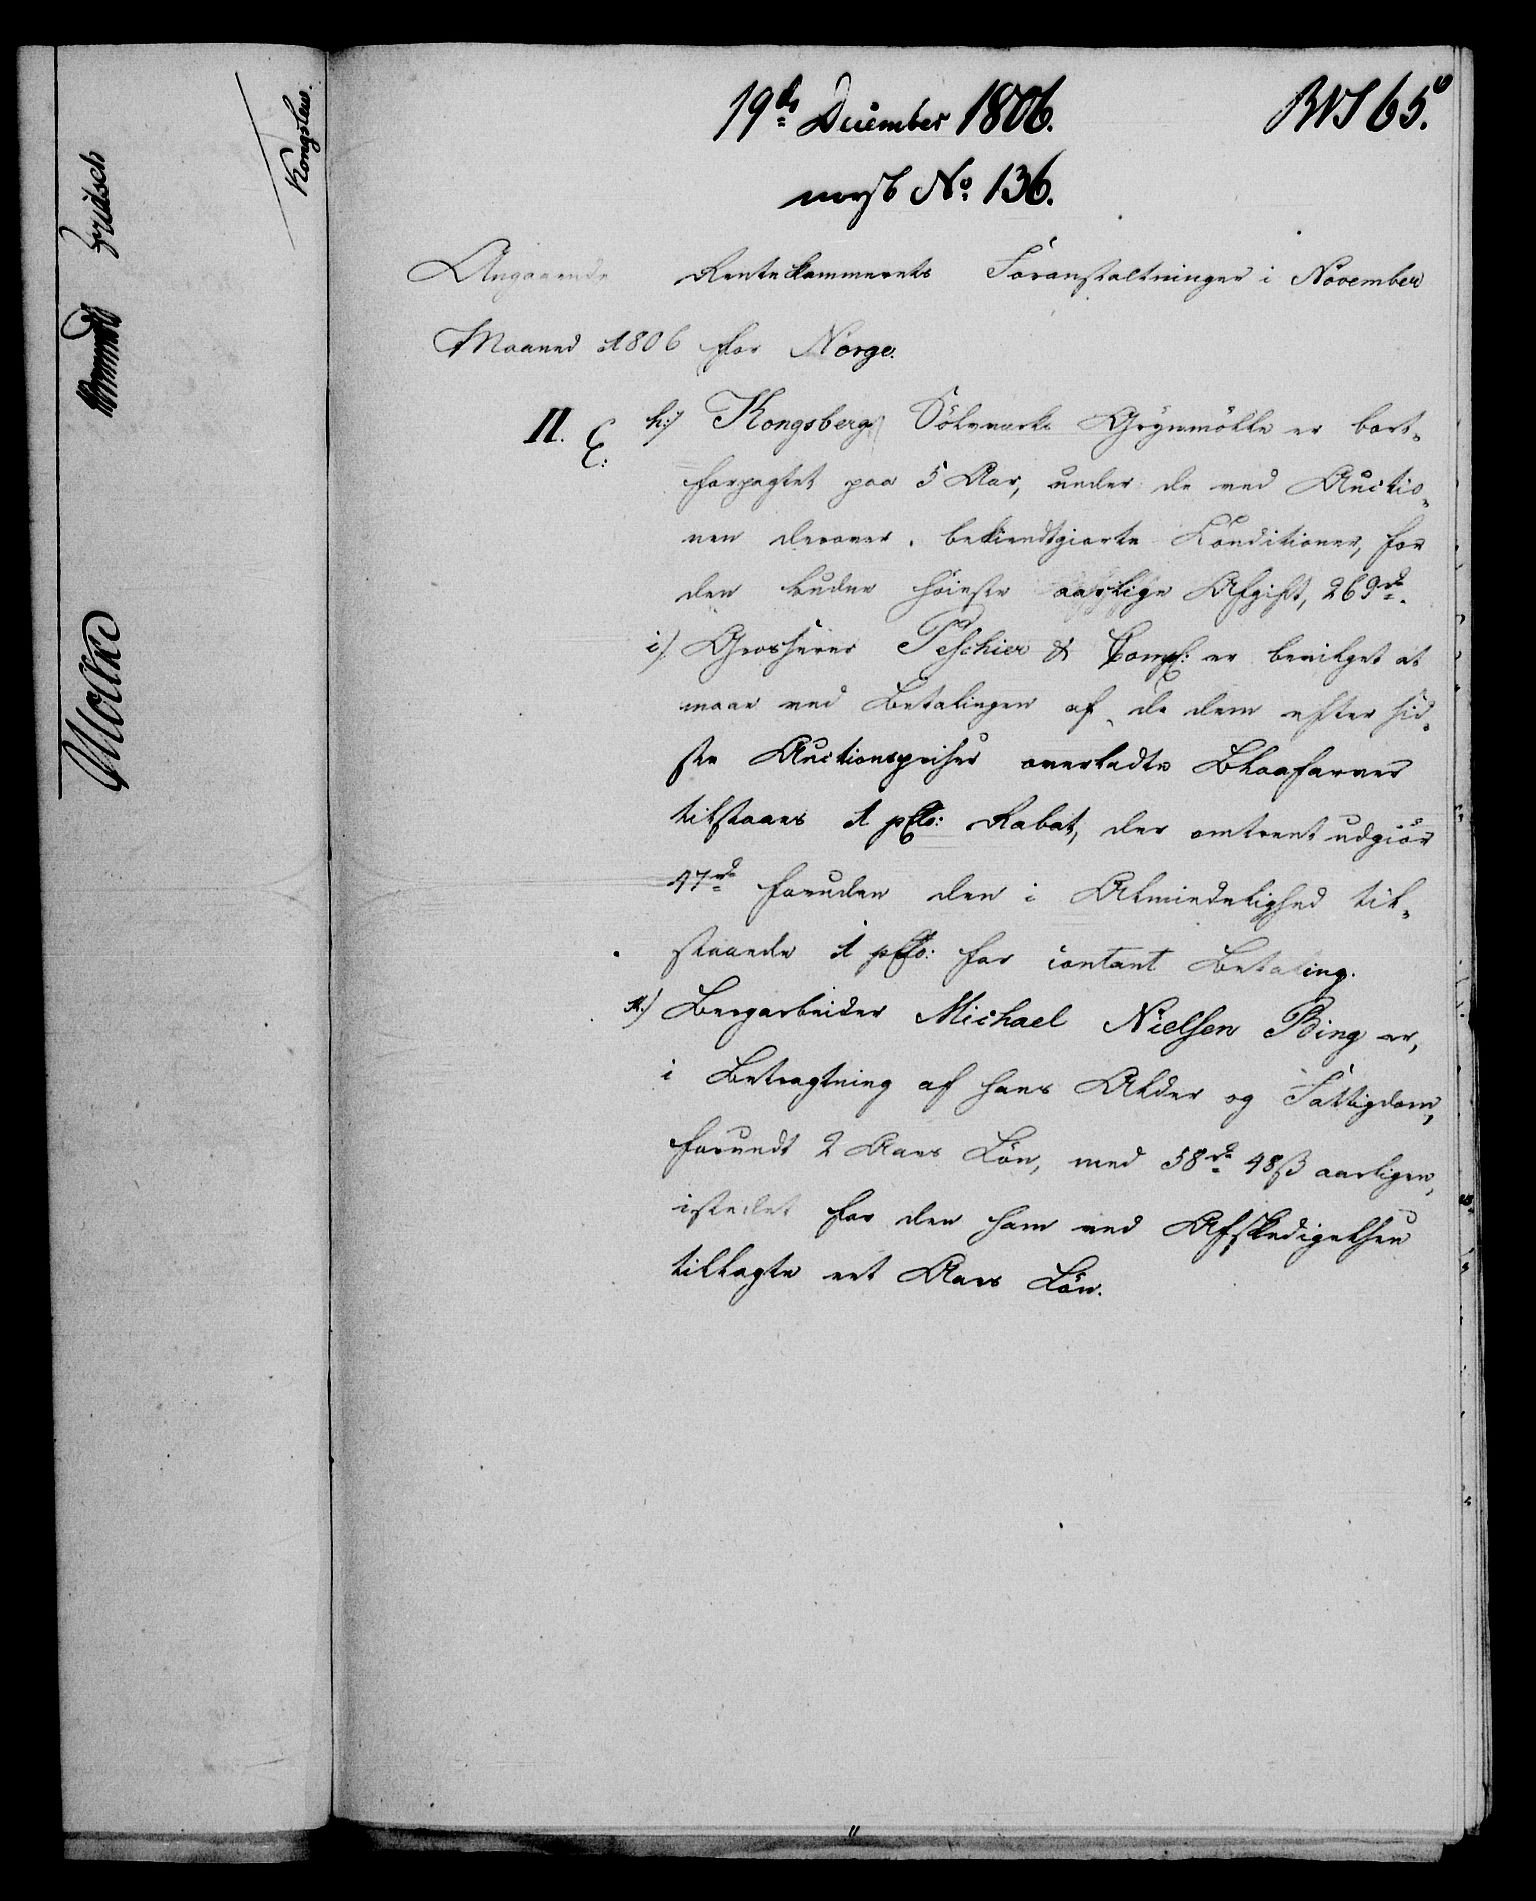 19de December 1806.
No. 136.
Angaaende Rentekammerets Foranstaltninger i November
Maaned 1806 for Norge.
II. C: h.) Kongsbergs Sölvværks Grynmölle er bort-
forpagtet paa 5 Aar, under de ved Auctio-
nen derover bekiendtgiorte Conditioner, for
den budne höieste aarlige Afgift, 269rd.
i) Grosserer Peschier & Comp: er bevilget at
maae ved Betalingen af de dem efter sid-
ste Auctionspriser overladte Blaafarver
tilstaaes 1 pCto: Rabat, der omtrent udgiör
47rd foruden den i Almindelighed til-
staaede 1 pCto: for contant Betaling.
k.) Bergarbeider Michael Nielsen Bing er,
i Betragtning af hans Alder og Fattigdom,
forundt 2 Aars Lön, med 58rd 48ß aarligen,
istedet for den ham ved Afskedigelsen
tillagte eet Aars Lön.
Moltke
Fridsch
Kongslew.